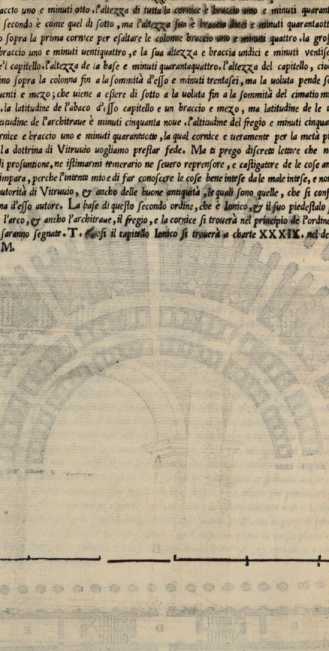 accio uno e minuti otto. l'altezza di tutta la cornice è braccio uno e minuti quarant
secondo è come quel di sotto, ma l'altezza sua è braccia dieci e minuti quarantin
o sopra la prima cornice per esaltare le colonne braccio uno e minuti quattro. la gros
braccio uno e minuti uentiquattro, e la sua altezza e braccia undici e minuti uentise
e'l capitello. l'altezza de la base e minuti quarantaquattro. l'altezza del capitello, cioe
ino sopra la colonna fin a la sommità d'esso e minuti trentasei, ma la uoluta pende s
uenti e mezo; che uiene a essere di sotto a la uoluta fin a la sommità del cimatio mi
. la latitudine de l'abaco d'esso capitello e un braccio e mezo, ma latitudine de le u
titudine de l'architraue è minuti cinquanta noue. l'altitudine del fregio e minuti cinqua
rnice e braccio uno e minuti quarantotto, la qual cornice e ueramente per la metà p
la dottrina di Vitruuio uogliamo prestar fede. Ma ti prego discreto lettore che n
di prosuntione, ne istimarmi temerario ne seuero reprensore, e castigatore de le cose an
impara, perche l'intento mio e di far conoscere le cose bene intese da le male intese, e non
autorità di Vitruuio, & ancho delle buone antiquità, le quali sono quelle, che si conf
na d'esso autore. La base di questo secondo ordine, che è Ionico, & il suo piedestalo,
l'arco, & ancho l'architraue, il fregio, e la cornice si trouerà nel principio de l'ordine
saranno segnate. T. & cosi il capitello Ionico si trouerà a charte XXXIX. nel de
M.